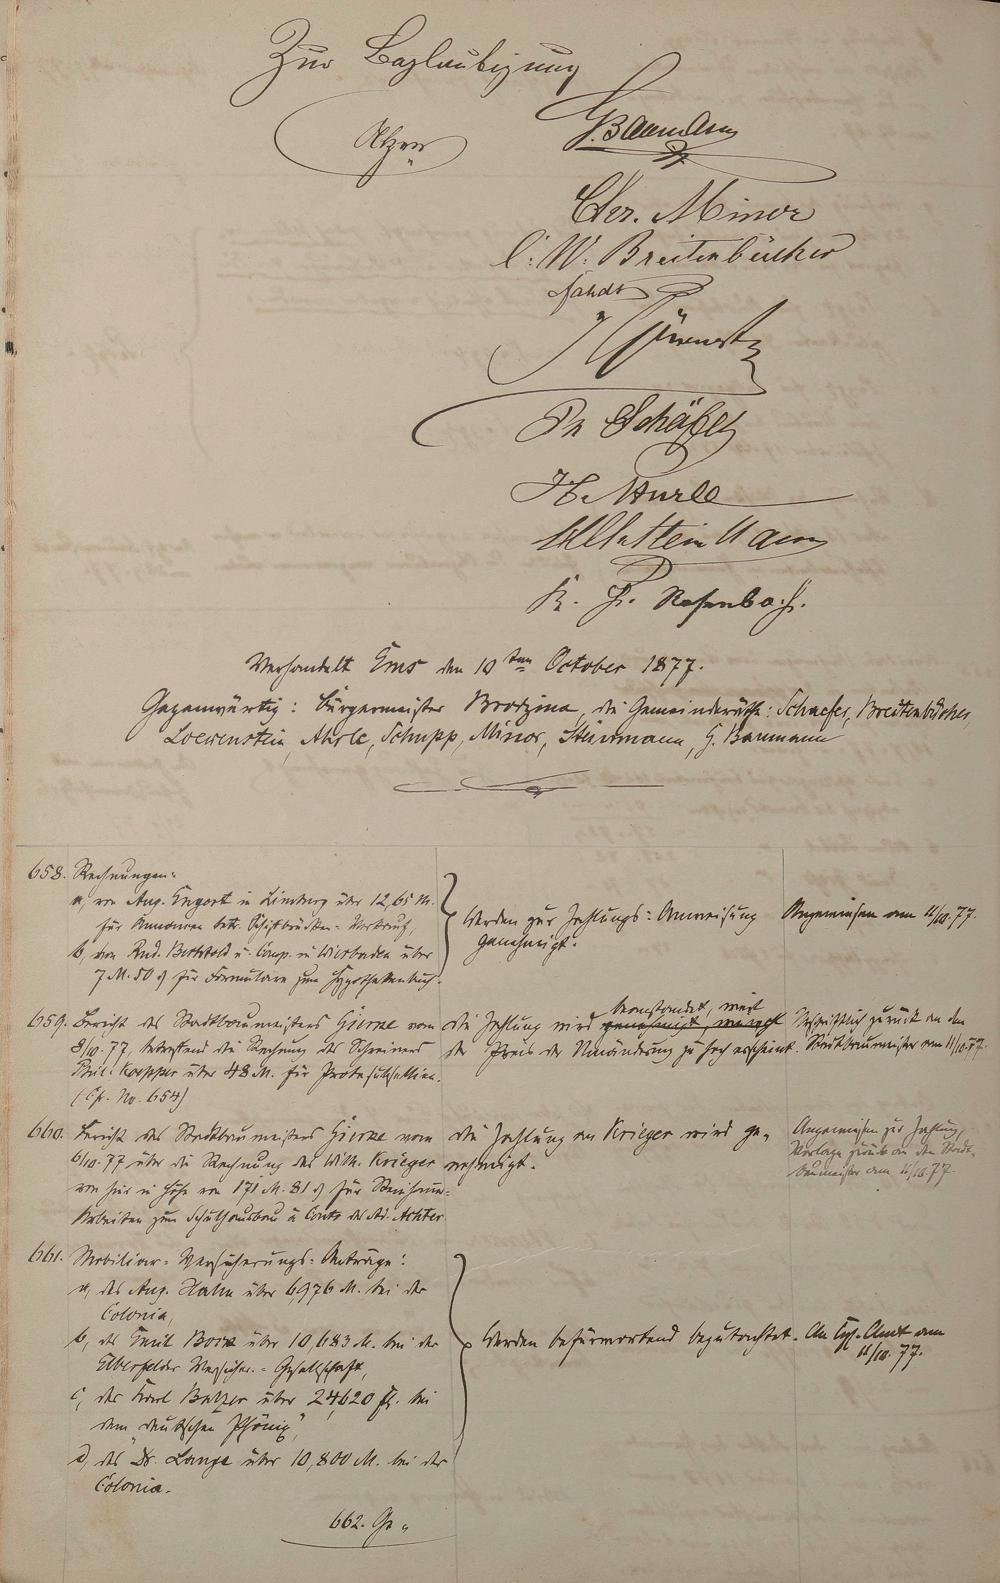 Zur Beglaubigung
G. Baumann
Chr. Minor
C. W. Breitenbücher
Pn Schäfer
H. Ahrle
K. H. Rosenbach.
Verhandelt Ems den 10ten October 1877.
Gegenwärtig: Bürgermeister Brodzina, die Gemeinderäthe: Schaefer, Breitenbücher,
Loewenstein, Ahrle, Schupp, Minor, Steinmann, G. Baumann
658. Rechnungen:
a, von Aug. Engert in Limburg über 12,65 M.
für Annoncen betr. Schiffbrücken-Verkauf,
b, von Rud. Bechtold u. Comp. in Wiesbaden über
7 M. 50 ₰ für Formulare zum Hypothekenbuch.
Werden zur Zahlungs-Anweisung
genehmigt.
Angewiesen am 11/10.77.
659. Bericht des Stadtbaumeisters Gierke vom
8/10.77, betreffend die Rechnung des Schreiners
Phil. Kaepper über 48 M. für
(Cfr. No. 654)
die Zahlung wird genehmigt, beanstandet, weil
der Preis der Umänderung zu hoch erscheint.
Urschriftlich zurück an den
Stadtbaumeister am 11/10.77.
660. Bericht des Stadtbaumeisters Gierke vom
6/10.77 über die Rechnung des Wilh. Krieger
von hier in Höhe von 171 M. 81 ₰ für Steinhauer-
Arbeiten zum Schulhausbau a Conto des Ad. Achter.
die Zahlung an Krieger wird ge-
nehmigt.
Angewiesen zur Zahlung,
Vorlage zurück an den Stadt-
baumeister am 11/10.77
661. Mobiliar-Versicherungs-Anträge:
a, des Aug. Hahn über 6,976 M. bei der
Colonia,
b, des Emil Bock über 10,683 M. bei der
Elberfelder Versicher.-Gesellschaft,
c, des Karl Balzer über 24,620 fl. bei
dem "deutschen Phönix",
d, des Dr. Lange über 10,800 M. bei der
Colonia.
Werden befürwortend begutachtet.
An Kgl. Amt am
11/10.77.
662. Ge-